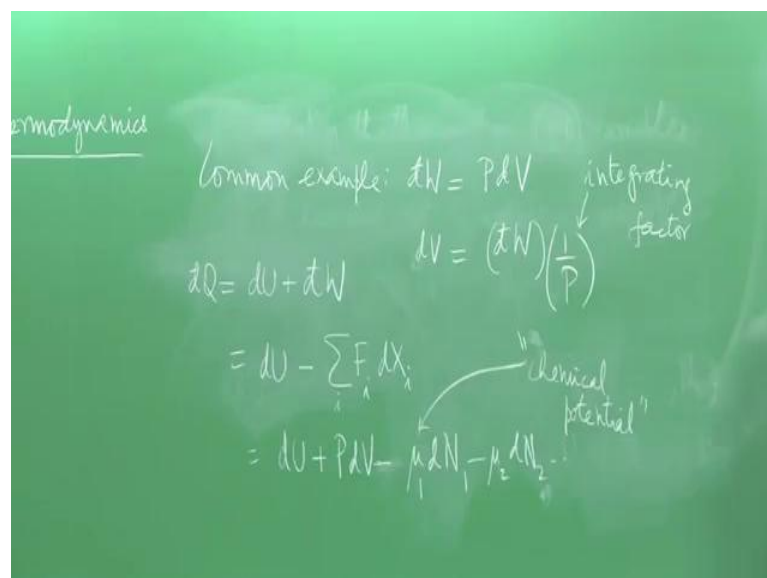 ermodynamics
Common example: đW = PdV
integrating
factor
dV = (đW)(1/P)
đQ = dU + đW
= dU - ∑_i F_i dX_i
"chemical
potential"
= dU + PdV - μ_1 dN_1 - μ_2 dN_2 ...